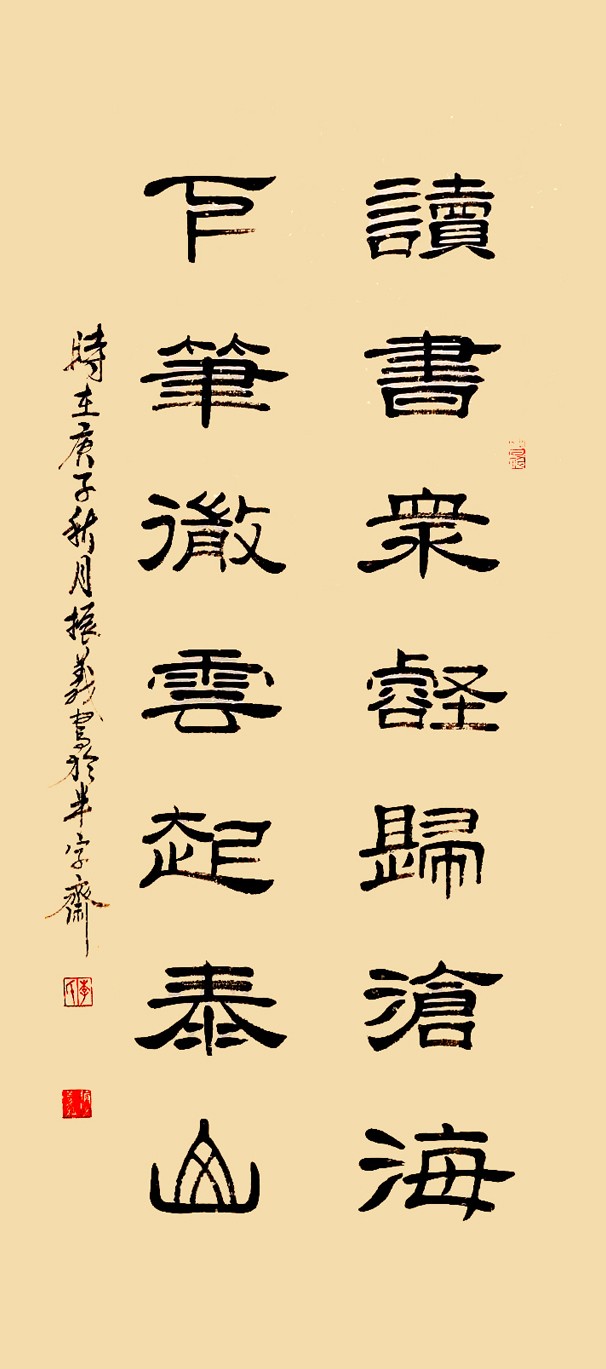 讀書眾壑歸滄海
下筆微雲起泰山
時在庚子秋月振義書於半字齋